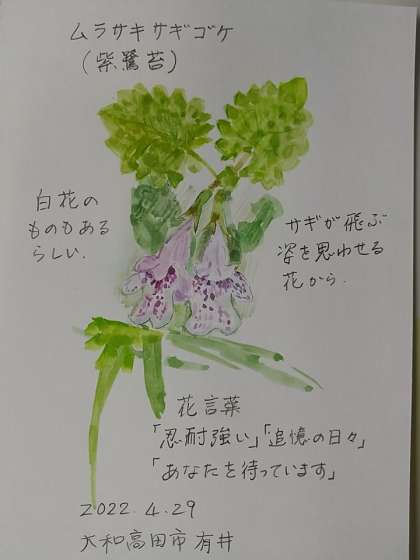 ムラサキサギゴケ
(紫鷺苔)
白花の
ものもある
らしい.
サギが飛ぶ
姿を思わせる
花から.
花言葉
「忍耐強い」「追憶の日々」
「あなたを待っています」
2022.4.29
大和高田市 有井